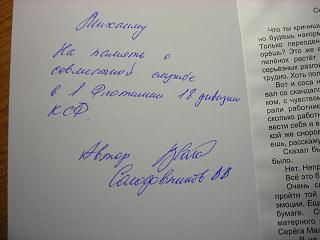 Михаилу
На память о
совместной службе
в 1 Флотилии 18 дивизии
КСФ.
Автор
Солодовников ВВ
Что ты кричишь
но будешь накорм
Только переоден
пелёнок растёт
серьёзных разго
трудно. Хоть пол
Вот и сося
вал со скандало
ком, с чувством
рали работник
сколько работн
вести себя и в
кой же сноров
ешь, расскажу
Сказал бы
было.
Нет. Непр
Всё это б
Очень с
пройти той
эмоции. Ещ
бумаге. С
матерного
Серёга Мал